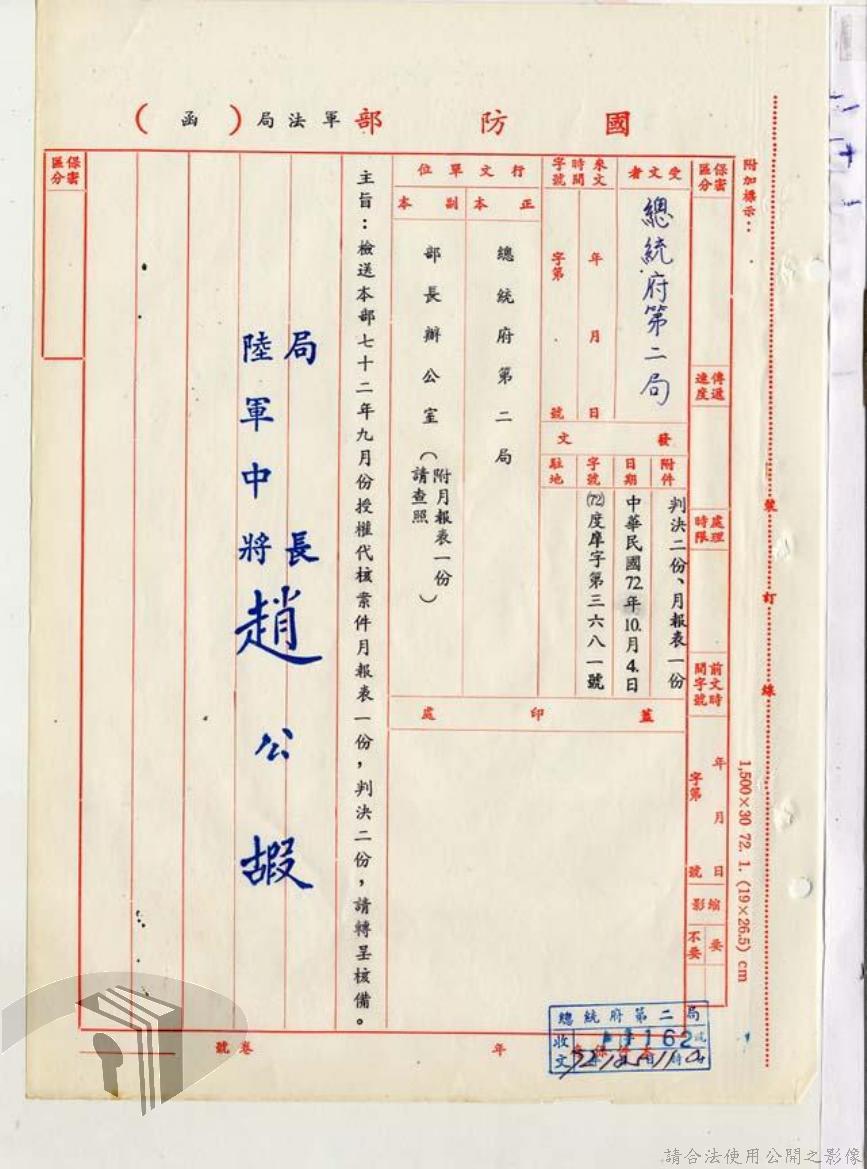 國防部軍法局（函）
附加標示：
裝訂線
1,500×30 72. 1. (19×26.5) cm
保密區分
傳遞速度
處理時限
前文時間字號
年月日
字第號
縮影
要
不要
受文者
總統府第二局
來文時間字號
年月日
字第號
發文
附件
判決二份、月報表一份
日期
中華民國72年10.月4.日
字號
(72)度庠字第三六八一號
駐地
行文單位
正本
總統府第二局
副本
部長辦公室（附月報表一份請查照）
蓋印處
主旨：檢送本部七十二年九月份授權代核案件月報表一份，判決二份，請轉呈核備。
局長
陸軍中將趙公嘏
保密區分
年
卷號
總統府第二局
收文
162號
請合法使用公開之影像